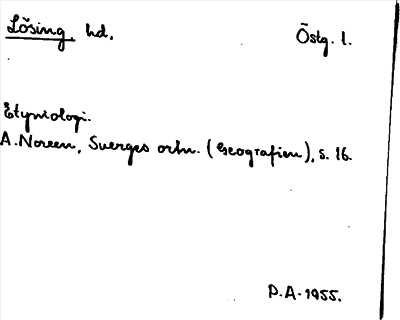 Lösing, hd. Östg. l.
Etymologi.
A. Noreen, Sverges ortn. (Geografien), s. 16.
P.A. 1955.